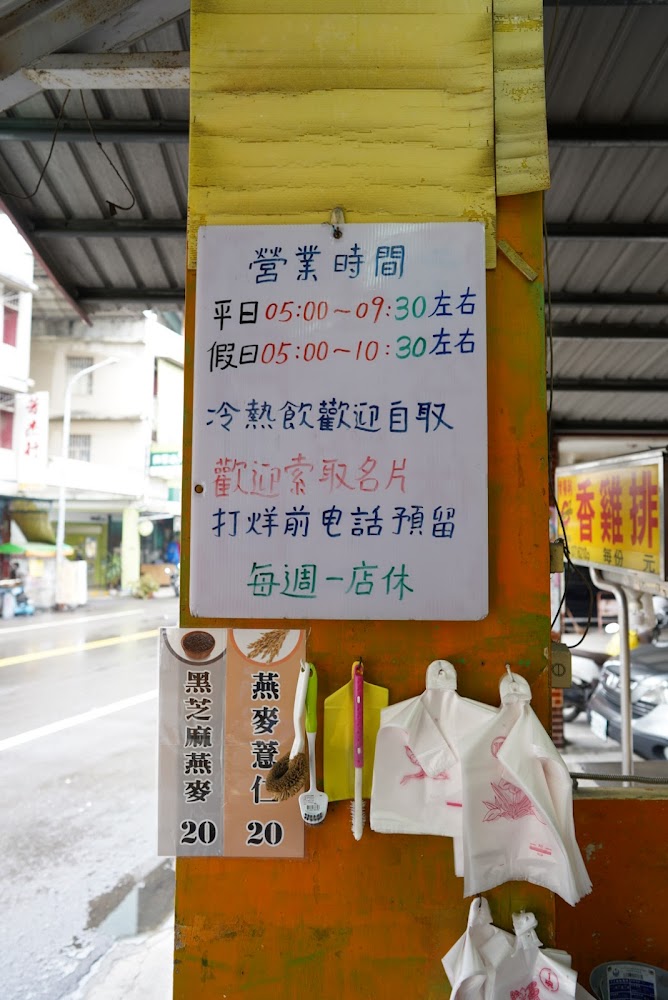 營業時間
平日05:00～09:30左右
假日05:00～10:30左右
冷熱飲歡迎自取
歡迎索取名片
打烊前電話預留
每週一店休
黑芝麻燕麥
20
燕麥薏仁
20
香雞排
每份 元